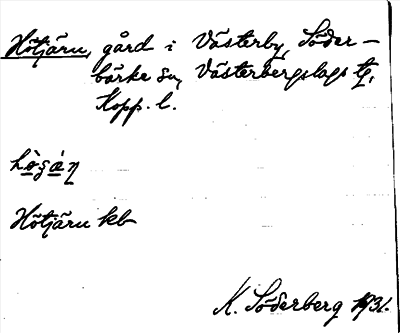 Hötjärn, gård i Västerby, Söder-
bärke sn, Västerbergslags tg,
Kopp. l.
Hötjärn kb
K. Söderberg 1931.